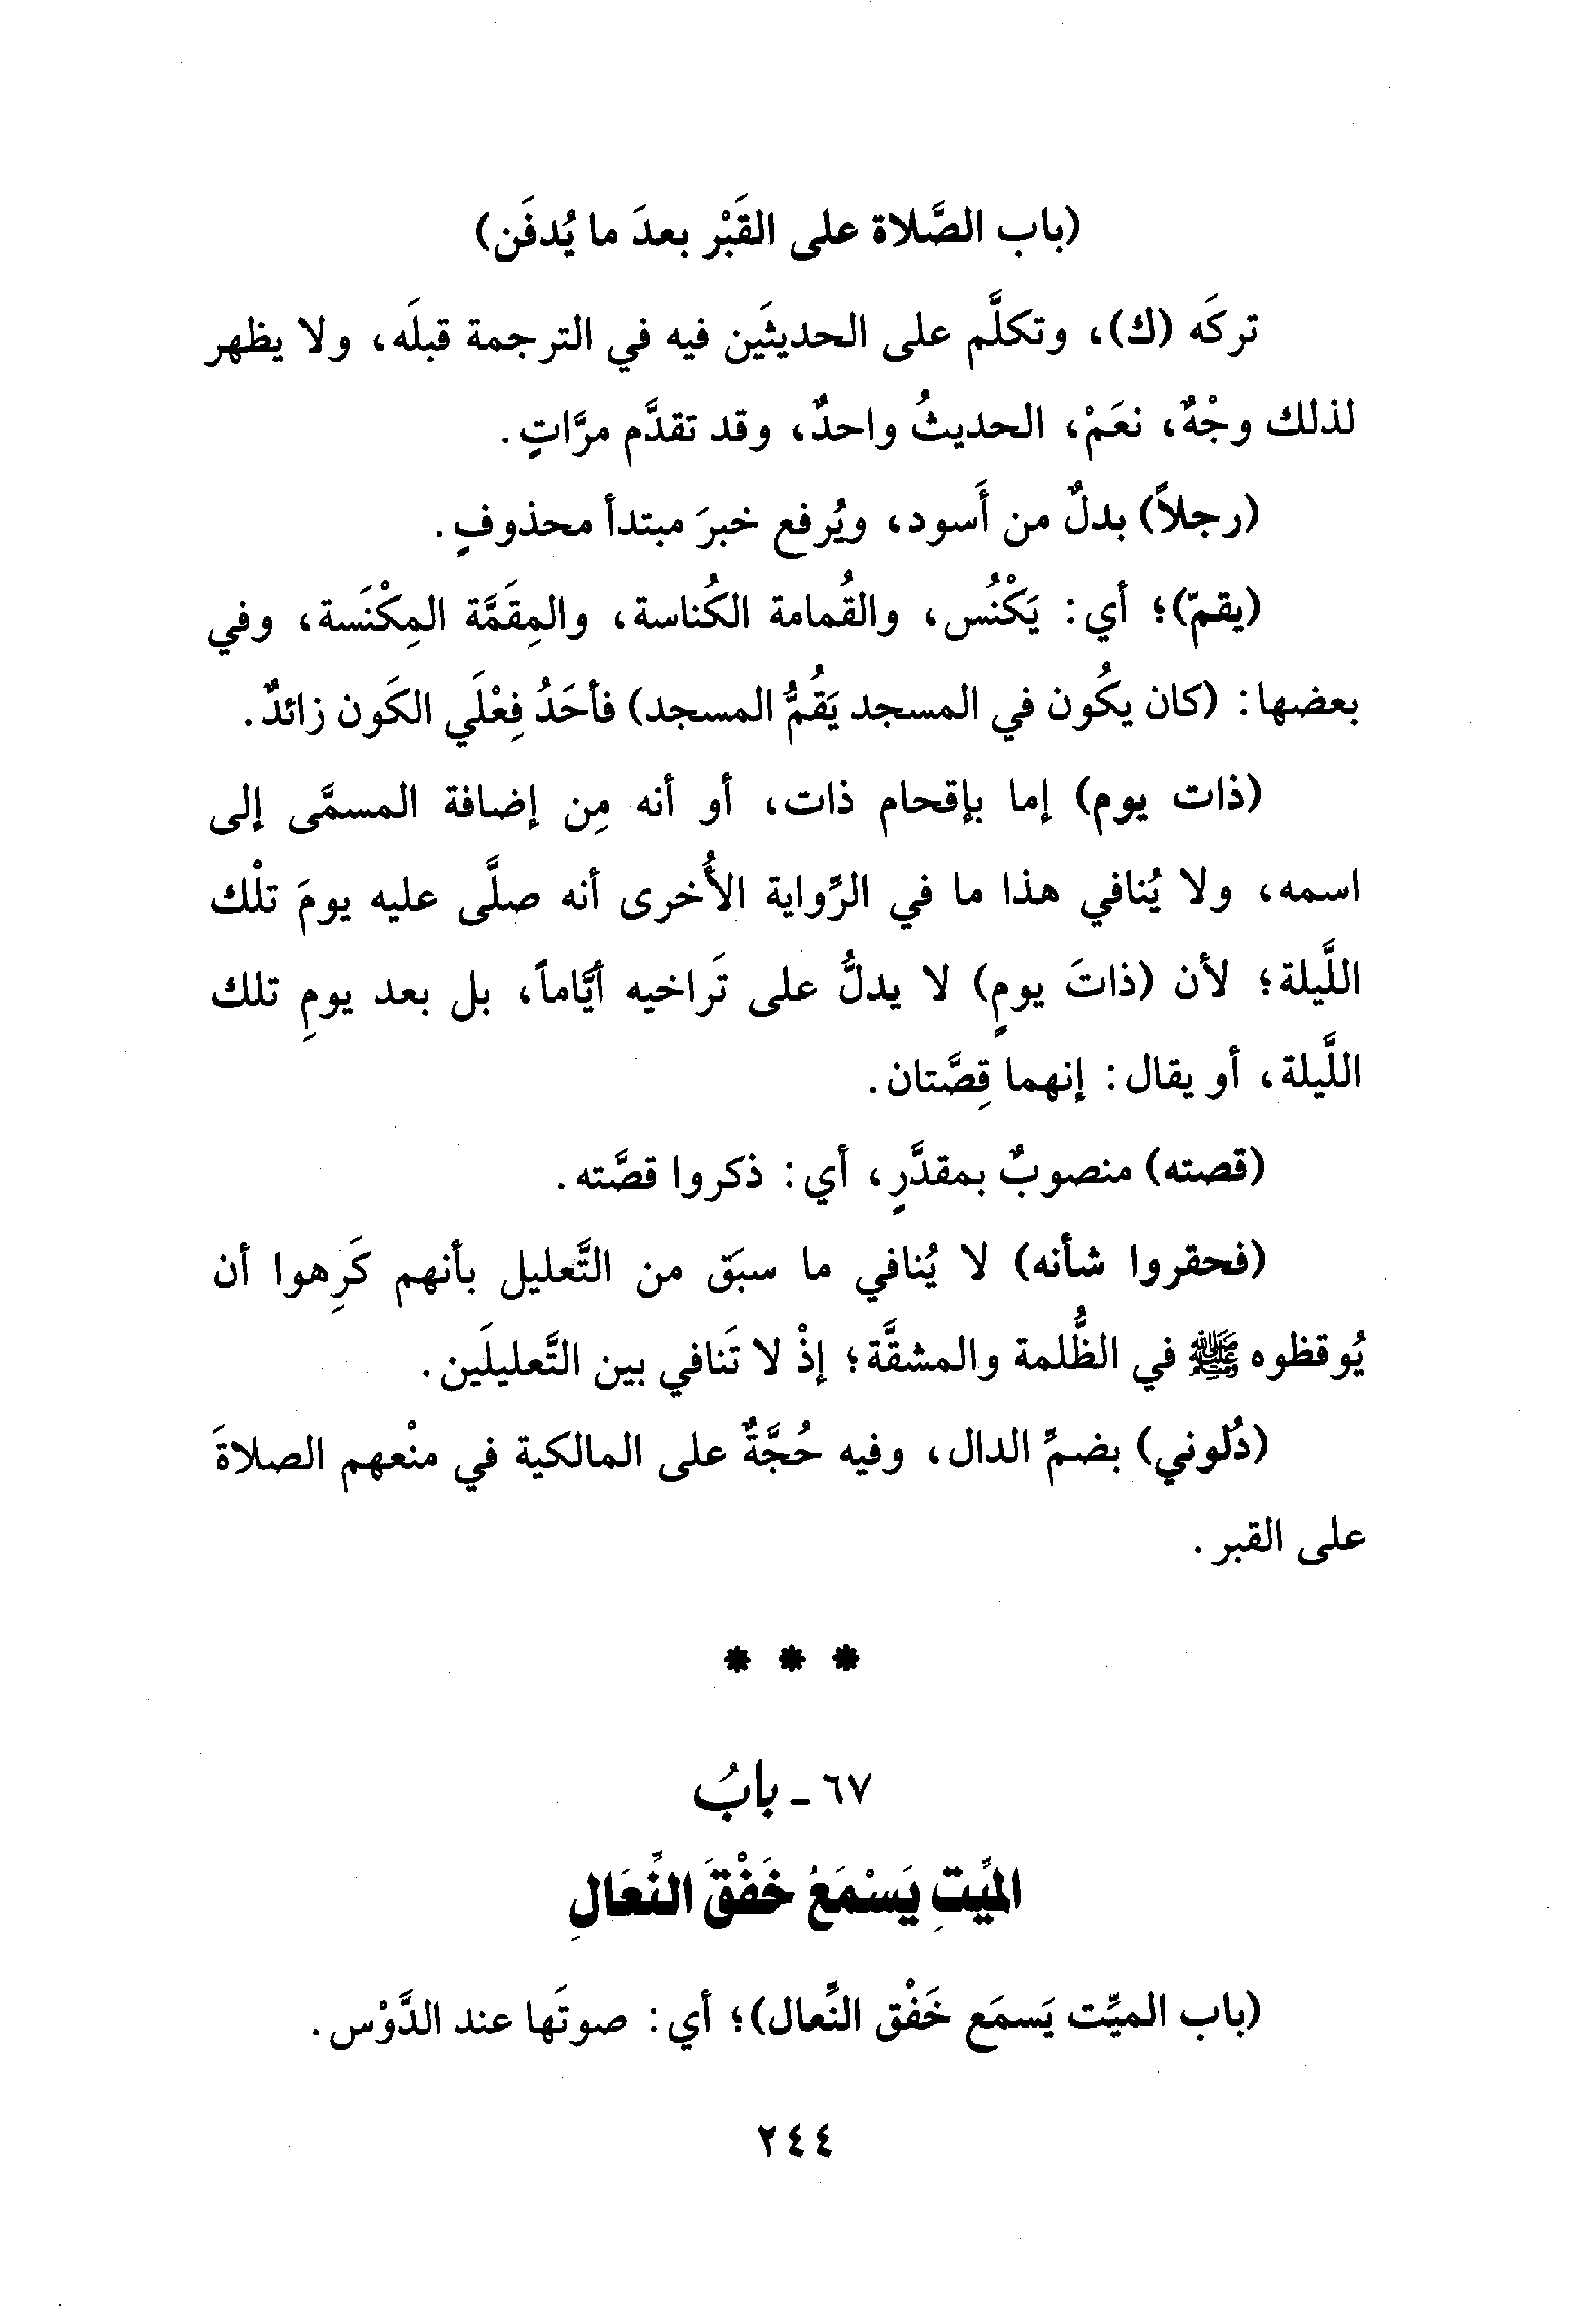 (باب الصَّلاة على القَبْر بعدَ ما يُدفَن)
تركَه (ك)، وتكلَّم على الحديثَين فيه في الترجمة قبلَه، ولا يظهر
لذلك وجْهٌ، نعَمْ، الحديثُ واحدٌ، وقد تقدَّم مرَّاتٍ.
(رجلاً) بدلٌ من أَسود، ويُرفع خبرَ مبتدأ محذوفٍ.
(يقمّ)؛ أي: يَكْنُس، والقُمامة الكُناسة، والمِقَمَّة المِكْنَسة، وفي
بعضها: (كان يكُون في المسجد يَقُمُّ المسجد) فأحَدُ فِعْلَي الكَون زائدٌ.
(ذات يوم) إما بإقحام ذات، أو أنه مِن إضافة المسمَّى إلى
اسمه، ولا يُنافي هذا ما في الرِّواية الأُخرى أنه صلَّى عليه يومَ تلْك
اللَّيلة؛ لأن (ذاتَ يومٍ) لا يدلُّ على تَراخيه أيَّاماً، بل بعد يومِ تلك
اللَّيلة، أو يقال: إنهما قِصَّتان.
(قصته) منصوبٌ بمقدَّرٍ، أي: ذكروا قصَّته.
(فحقروا شأنه) لا يُنافي ما سبَق من التَّعليل بأنهم كَرِهوا أن
يُوقظوه ﷺ في الظُّلمة والمشقَّة؛ إذْ لا تَنافي بين التَّعليلَين.
(دُلوني) بضمِّ الدال، وفيه حُجَّةٌ على المالكية في منْعهم الصلاةَ
على القبر.
* * *
٦٧ - بابُ
الميِّتِ يَسْمَعُ خَفْقَ النِّعَالِ
(باب الميِّت يَسمَع خَفْق النِّعال)؛ أي: صوتَها عند الدَّوْس.
٢٤٤